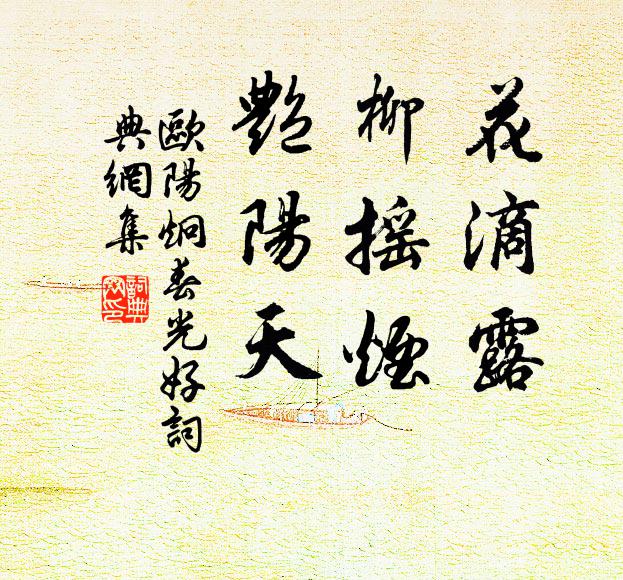 花滴露
柳搖煙
艷陽天
歐陽炯春光好詞
典網集
詞典